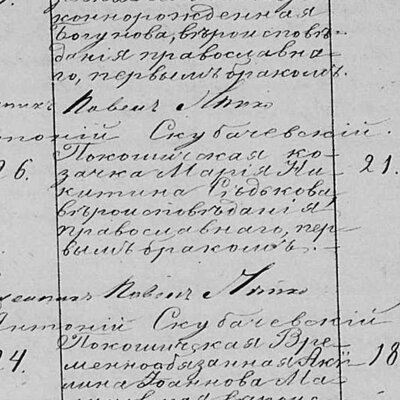 коннорожденная
Богунова, вѣроисповѣ-
данія православна-
го, первымъ бракомъ.
Павелъ
нтоній Скубачевскій.
26. Покошичская ко- 21.
зачка Марія Ни-
китина Гѣдькова
вѣроисповѣданія
православнаго, пер-
вымъ бракомъ. –
Павелъ
Антоній Скубачевскій
24. Покошичская Вре- 18
меннообязанная Аки-
лина Іоаннова Ма-